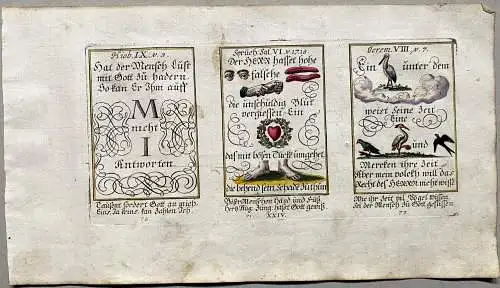 Hiob. IX. v. 3.
Hat der Mensch Lust
mit Gott zu hadern.
So kan Er Ihm auff
M
nicht
I
Antworten.
Tausent fordert Gott zu
Eins, Ja keins kan Zahlen Ich.
Sprüch Sal. VI v. 17.18
Der HERR hasset hohe
falsche
die unschuldig Blut
vergiessen Ein
das mit bösen Tück umgehet
die behend sein, Schade Zu thun
Böser Menschen Hand und Füß
Herz Aug Zung hasst Gott gewiß
XXIV.
Jerem. VIII v. 7.
Ein unter dem
weist seine Zeit
Eine
und
Mercken ihre Zeit
Aber mein volckh will das
Recht des HERRN nicht wißē
Wie ihr Zeit die Vögel wißen
Sei der Mensch zu Gott geflissen